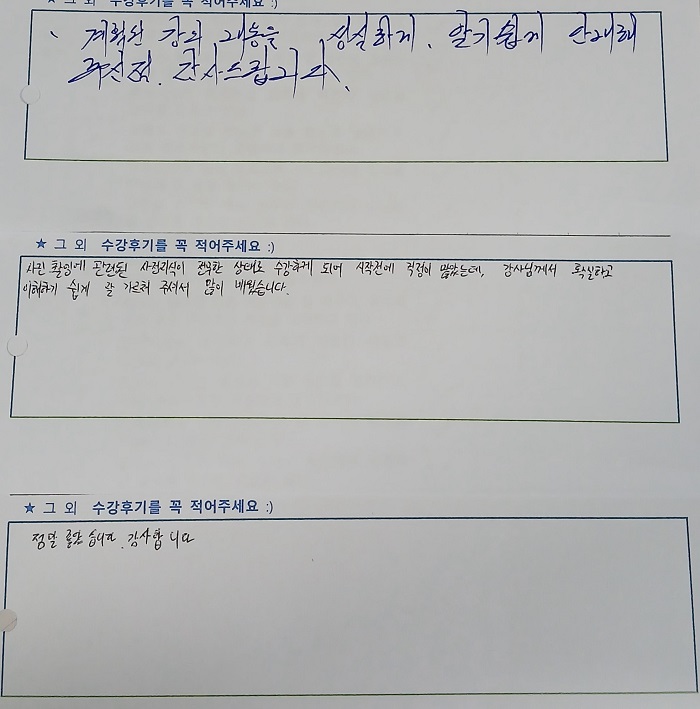 ★ 그 외 수강후기를 꼭 적어주세요 :)
、 계획된 강의 내용을 성실하게. 알기쉽게 안내해
주신점. 감사드립니다.
★ 그 외 수강후기를 꼭 적어주세요 :)
사진 촬영에 관련된 사전지식이 전무한 상태로 수강하게 되어 시작전에 걱정이 많았는데, 강사님께서 특실하고
이해하기 쉽게 잘 가르쳐 주셔서 많이 배웠습니다.
★ 그 외 수강후기를 꼭 적어주세요 :)
정말 좋았습니다. 감사합니다